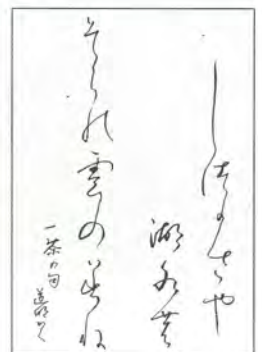 しづかさや
湖水の
そこの雲のみね
一茶の句